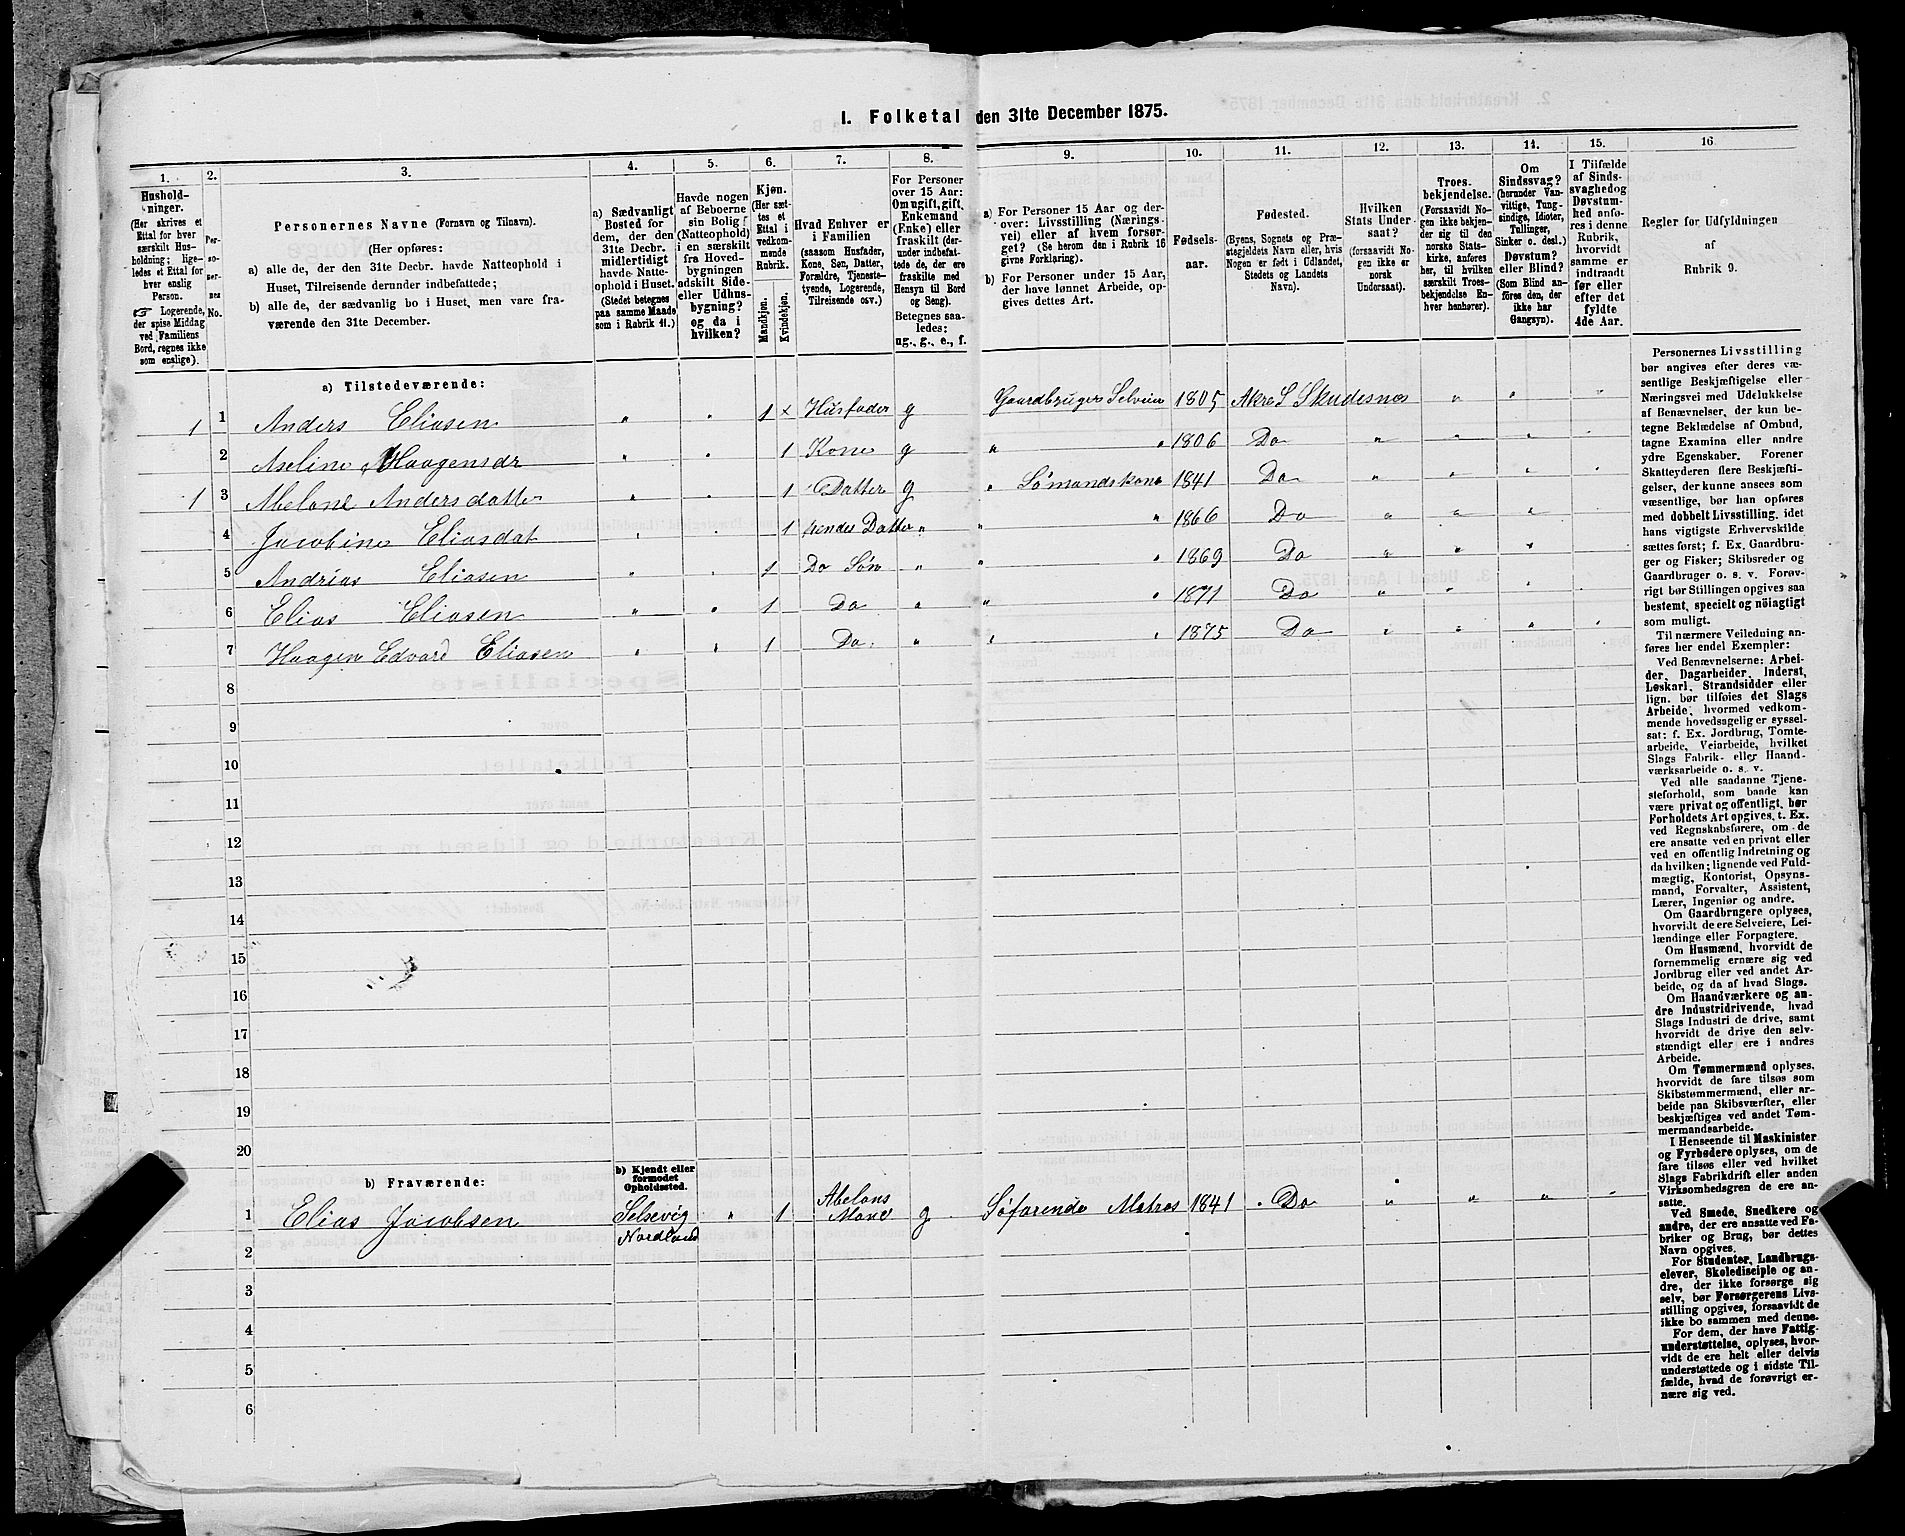 I. Folketal den 31te December 1875.
1. 2. 3. 4. 5. 6. 7. 8. 9. 10. 11. 12. 13. 14. 15. 16
Hushold-
ninger.
(Her skrives et
Ettal for hver
særskilt Hus-
holdning; lige-
ledes et Ettal for
hver enslig
Person.
☞ Logerende,
der spise Middag
ved Familiens
Bord, regnes ikke
som enslige).
Per-
so-
ner-
nes
No.
Personernes Navne (Fornavn og Tilnavn).
(Her opføres:
a) alle de, der den 31te Decbr. havde Natteophold i
Huset, Tilreisende derunder indbefattede;
b) alle de, der sædvanlig bo i Huset, men vare fra-
værende den 31te December.
a) Sædvanligt
Bosted for
dem, der den
31te Decbr.
midlertidigt
havde Natte-
ophold i Huset.
(Stedet betegnes
paa samme Maade
som i Rubrik 11.)
Havde nogen
af Beboerne
sin Bolig
(Natteophold)
i en særskilt
fra Hoved-
bygningen
adskilt Side-
eller Udhus-
bygning?
og da i
hvilken?
Kjøn.
(Her sæt-
tes et
Ettal i
vedkom-
mende
Rubrik.
Mandkjøn.
Kvindekjøn.
Hvad Enhver er
i Familien
(saasom Husfader,
Kone, Søn, Datter,
Forældre, Tjeneste-
tyende, Logerende,
Tilreisende osv.)
For Personer
over 15 Aar:
Om ugift, gift,
Enkemand
(Enke) eller
fraskilt (der-
under indbefat-
tede de, der ere
fraskilte med
Hensyn til Bord
og Seng).
Betegnes saa-
ledes:
ug., g., e., f.
a) For Personer 15 Aar og der-
over: Livsstilling (Nærings-
vei) eller af hvem forsør-
get? (Se herom den i Rubrik 16
givne Forklaring).
b) For Personer under 15 Aar,
der have lønnet Arbeide, op-
gives dettes Art.
Fødsels-
aar.
Fødested.
(Byens, Sognets og Præ-
stegjeldets Navn eller, hvis
Nogen er født i Udlandet,
Stedets og Landets
Navn).
Hvilken
Stats Under-
saat?
(forsaavidt No-
gen ikke er
norsk
Undersaat).
Troes-
bekjendelse.
(Forsaavidt No-
gen ikke bekjen-
der sig til den
norske Stats-
kirke, anføres
her, til hvilken
særskilt Troes-
bekjendelse En-
hver henhører).
Om
Sindssvag?
(herunder Van-
vittige, Tung-
sindige, Idioter,
Tullinger,
Sinker o. desl.)
Døvstum?
eller Blind?
(Som Blind an-
føres den, der
ikke har
Gangsyn).
I Tilfælde
af Sinds-
svaghed og
Døvstum-
hed anfø-
res i denne
Rubrik,
hvorvidt
samme er
indtraadt
før eller
efter det
fyldte
4de Aar.
Regler for Udfyldningen
af
Rubrik 9.
a) Tilstedeværende:
1 1 Anders Eliasen " " 1 × Husfader g Gaardbruger Selveier 1805 Akre S Skudesnæs " " "
2 Aseline Haagensdr " " 1 Kone g " " 1806 Do " " " "
1 3 Abelone Andersdatter " " 1 Datter g " Sømandskone 1841 Do " " " "
4 Jacobine Eliasdat " " 1 hendes Datter " " " 1866 Do " " "
5 Andrias Eliasen " " 1 Do Søn " " " 1869 Do " " "
6 Elias Eliasen " " 1 Do " " " 1871 Do " " " "
7 Haagen Edvard Eliasen " " 1 Do. " " " 1875 Do " " " "
8
9
10
11
12
13
14
15
16
17
18
19
20
b) Fraværende:
b) Kjendt eller
formodet
Opholdssted.
1 Elias Jacobsen Selsevig " 1 Abelons Mand g Søfarende Matros 1841 Do " " " "
Nordland
2
3
4
5
6
Personernes Livsstilling
bør angives efter deres væ-
sentlige Beskjæftigelse eller
Næringsvei med Udelukkelse
af Benævnelser, der kun be-
tegne Beklædelse af Ombud,
tagne Examina eller andre
ydre Egenskaber. Forener
Skatteyderen flere Beskjæfti-
gelser, der kunne ansees som
væsentlige, bør han opføres
med dobbelt Livsstilling, idet
hans vigtigste Erhvervskilde
sættes først; f. Ex. Gaardbru-
ger og Fisker; Skibsreder og
Gaardbruger o. s. v. Forøv-
rigt bør Stillingen opgives saa
bestemt, specielt og nöiagtigt
som muligt.
Til nærmere Veiledning an-
føres her endel Exempler:
Ved Benævnelserne: Arbei-
der, Dagarbeider, Inderst,
Løskarl, Strandsidder eller
lign. bør tilføies det Slags
Arbeide, hvormed vedkom-
mende hovedsagelig er syssel-
sat: f. Ex. Jordbrug, Tomte-
arbeide, Veiarbeide, hvilket
Slags Fabrik- eller Haand-
værksarbeide o. s. v.
Ved alle saadanne Tjene-
steforhold, som baade kan
være privat og offentligt, bør
Forholdets Art opgives, t. Ex.
ved Regnskabsførere, om de
ere ansatte ved en privat eller
ved en offentlig Indretning og
da hvilken; lignende ved Fuld-
mægtig, Kontorist, Opsyns-
mand, Forvalter, Assistent,
Lærer, Ingeniør og andre.
Om Gaardbrugere oplyses,
hvorvidt de ere Selveiere, Lei-
lændinge eller Forpagtere.
Om Husmænd, hvorvidt de
fornemmelig ernære sig ved
Jordbrug eller ved andet Ar-
beide, og da af hvad Slags.
Om Haandværkere og an-
dre Industridrivende, hvad
Slags Industri de drive, samt
hvorvidt de drive den selv-
stændigt eller ere i andres
Arbeide.
Om Tømmermænd oplyses,
hvorvidt de fare tilsøs som
Skibstømmermænd, eller ar-
beide paa Skibsværfter, eller
beskjæftiges ved andet Tøm-
mermandsarbeide.
I Henseende til Maskinister
og Fyrbødere oplyses, om de
fare tilsøs eller ved hvilket
Slags Fabrikdrift eller anden
Virksomhedsgren de ere an-
satte.
Ved Smede, Snedkere og
andre, der ere ansatte ved Fa-
briker og Brug, bør dettes
Navn opgives.
For Studenter, Landbrugs-
elever, Skoledisciple og an-
dre, der ikke forsørge sig
selv, bør Forsørgerens Livs-
stilling opgives, forsaavidt de
ikke bo sammen med denne.
For dem, der have Fattig-
understøttelse, oplyses, hvor-
vidt de ere helt eller delvis
understøttede og i sidste Til-
fælde, hvad de forøvrigt er-
nære sig ved.